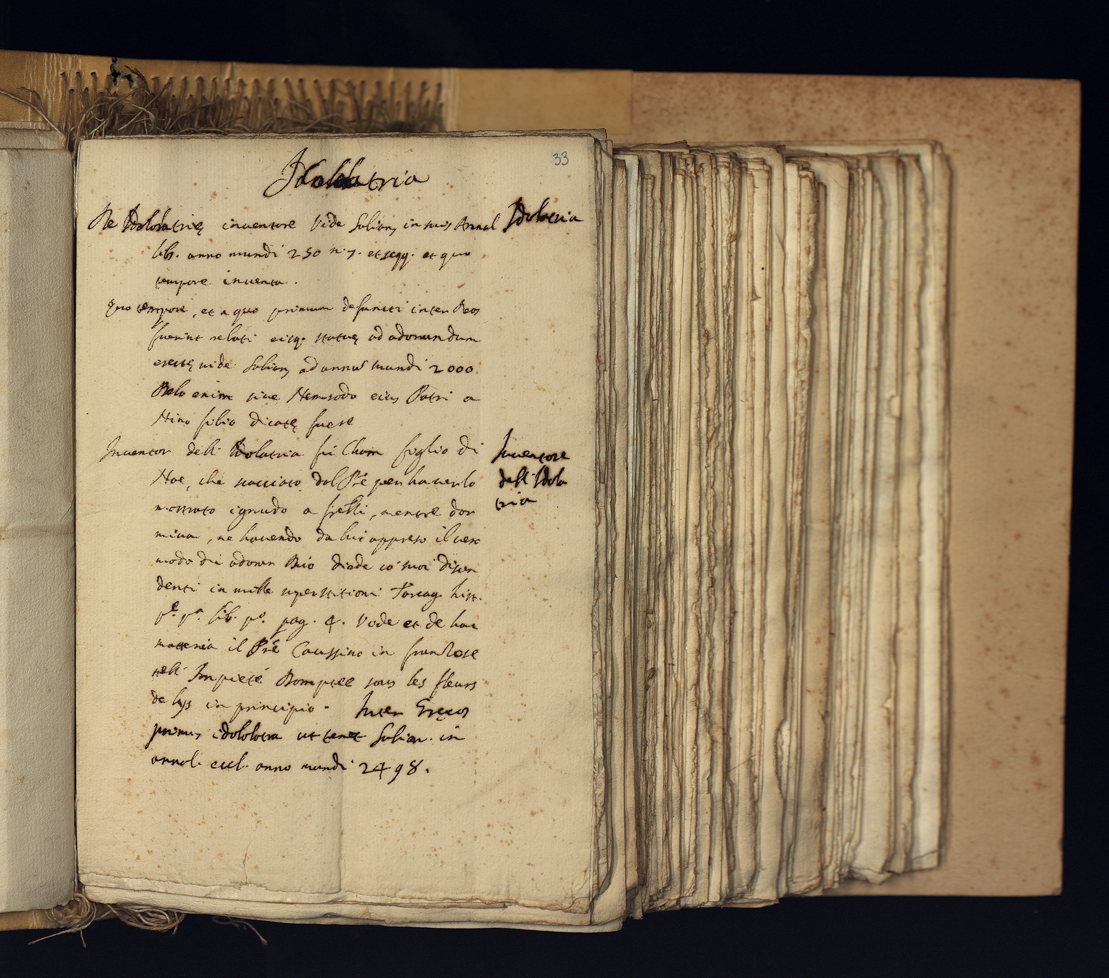 33
Idolatria
De Idolatrię inventore vide Salian, in suis Annal
Idolatria
lib. anno mundi 250 n. 7. et segg. et quo
tempore inventa.
Quo tempore, et a quo primum defuncti inter Deos
fuerint relati eisq. statuę ad adorandum
erectę vide Salian, ad annũ mundi 2000.
Belo enim sive Nemrodo eius Patri a
Nino filio dicatę fuere
Inventor dell' Idolatria fù Cham figlio di
Noe, che scacciato dal Pre̅ per haverlo
mostrato ignudo a frelli, mentre dor
miva, ne havendo da lui appreso il vero
modo di adorar Dio diede co suoi discen
denti in mille superstitioni Tarcag. hist.
pe. pa. lib. po. pag. 4. Vide et de hac
materia il Pre̅ Caussino in
nell' Impieté Domptee sous les fleurs
de lys in principio. Inter Gręcos
primus idololatra ut tenet Salian. in
annal. eccl. anno mundi 2498.
Inventore
dell' Idola
tria